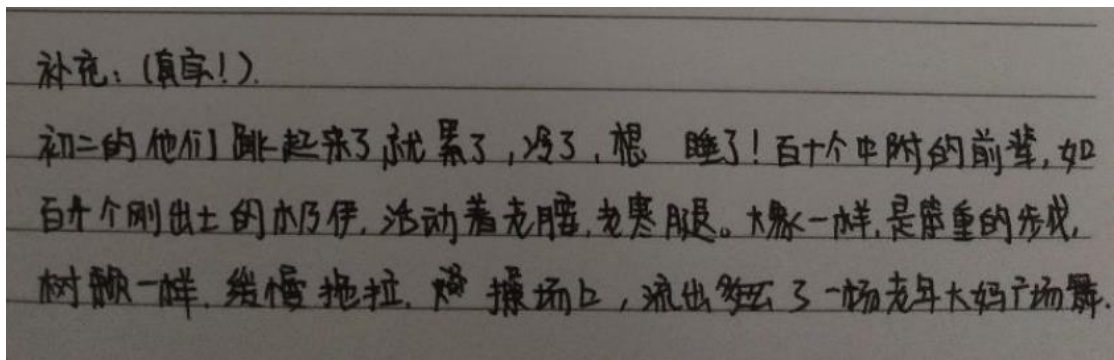 补充：(真实！).
初二的他们跳起来了就累了，冷了，想 睡了！百十个中附的前辈，如
百十个刚出土的木乃伊，活动着老腰，老寒腿。大象一样，是笨重的步伐，
树懒一样，缓慢拖拉。操场上，流出了一场老年大妈广场舞.